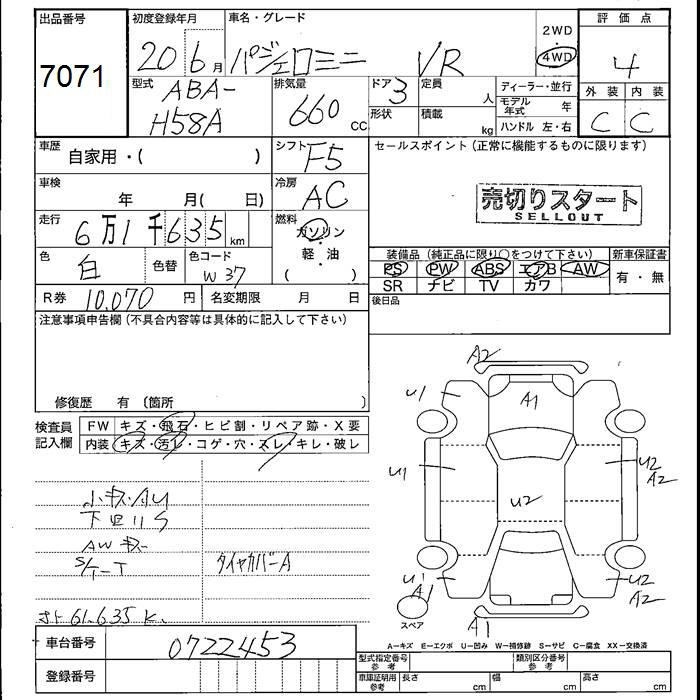 出品番号 初度登録年月 車名・グレード 2WD 評価点
7071 20 6月 パジェロミニ VR 4WD 4
型式 ABA- 排気量 ドア 3 定員 人 ディーラー・並行 外装 内装
H58A 660 CC 形状 積載 kg モデル年式 年 C C
ハンドル 左・右
車歴 自家用・( ) シフト F5 セールスポイント (正常に機能するものに限ります)
車検 年 月( 日) 冷房 AC
売切りスタート
SELLOUT
走行 6万1千635km 燃料 ガソリン・軽油 ( )
色 白 色替 色コード W37
装備品 (純正品に限り○をつけて下さい) 新車保証書
PS PW ABS エアB AW 有・無
SR ナビ TV カワ
R券 10,070円 名変期限 月 日 後日品
注意事項申告欄 (不具合内容等は具体的に記入して下さい)
修復歴 有 〔箇所 〕
検査員記入欄 FW キズ・飛石・ヒビ割・リペア跡・X要
内装 キズ・汚レ・コゲ・穴・スレ・キレ・破レ
小キズ・AU
下回りS
AWキズ
S/T-T タイヤカバーA
メーター 61.635 K.
A2
U1 A1
U1 U2 A2
U2
U1 A1 U2 A2
スペア A1
A-キズ E-エクボ U-凹み W-補修跡 S-サビ C-腐食 XX-交換済
車台番号 0722453 型式指定番号 参考 類別区分番号 参考
登録番号 車庫証明用 参考 長さ cm 幅 cm 高さ cm